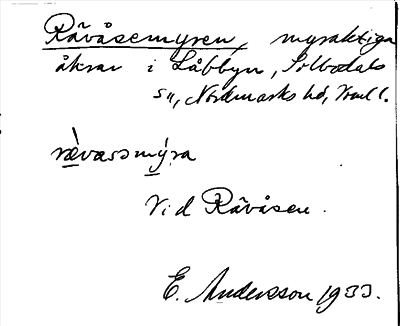 Rävåsemyren, myraktiga
åkrar i Låbbyn, Silbodals
sn, Nordmarks hd, Vrml.
rævasmýra
Vid Rävåsen.
E. Andersson 1933.